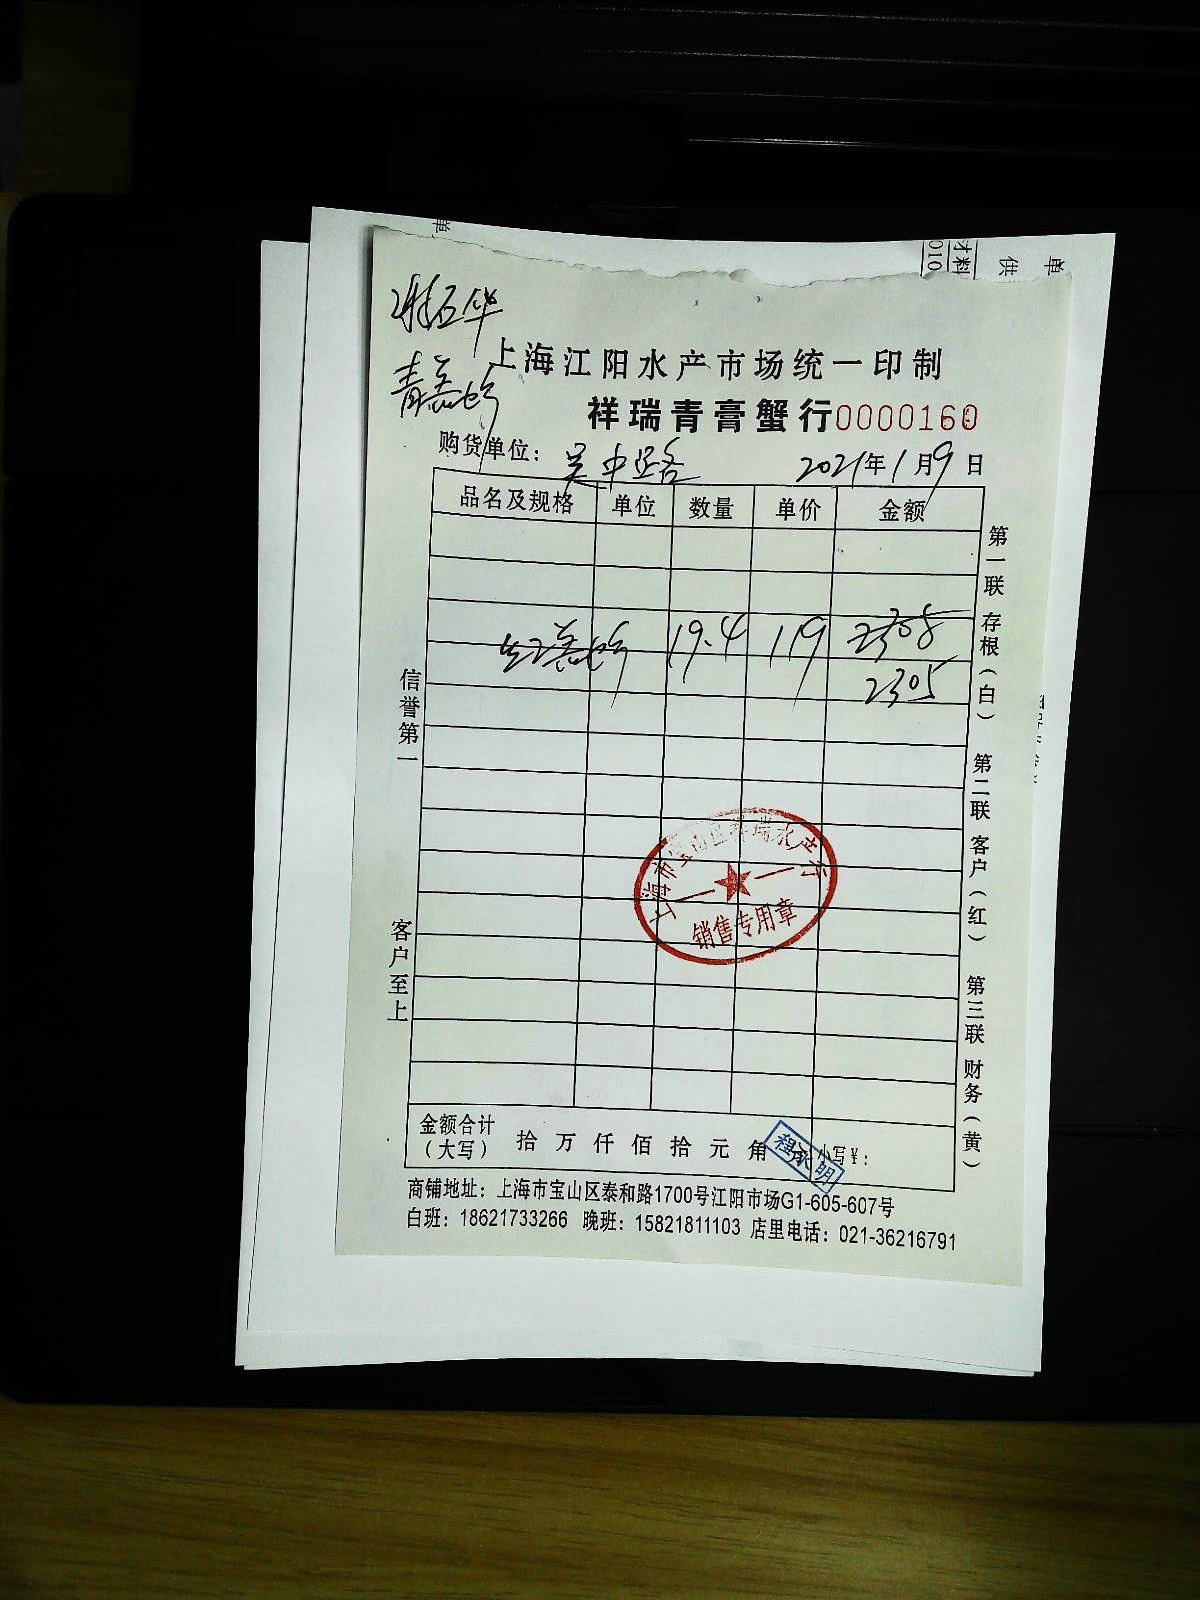 单
材料
010
供
单
上海江阳水产市场统一印制
祥瑞青膏蟹行0000160
购货单位：吴中路 2021年1月9日
品名及规格 单位 数量 单价 金额
19.4 119 2308
2305
信誉第一
客户至上
第一联 存根（白）
第二联 客户（红）
第三联 财务（黄）
上海市宝山区祥瑞水产行
销售专用章
金额合计
（大写） 拾 万 仟 佰 拾 元 角 分 小写¥：
程永明
商铺地址：上海市宝山区泰和路1700号江阳市场G1-605-607号
白班：18621733266 晚班：15821811103 店里电话：021-36216791